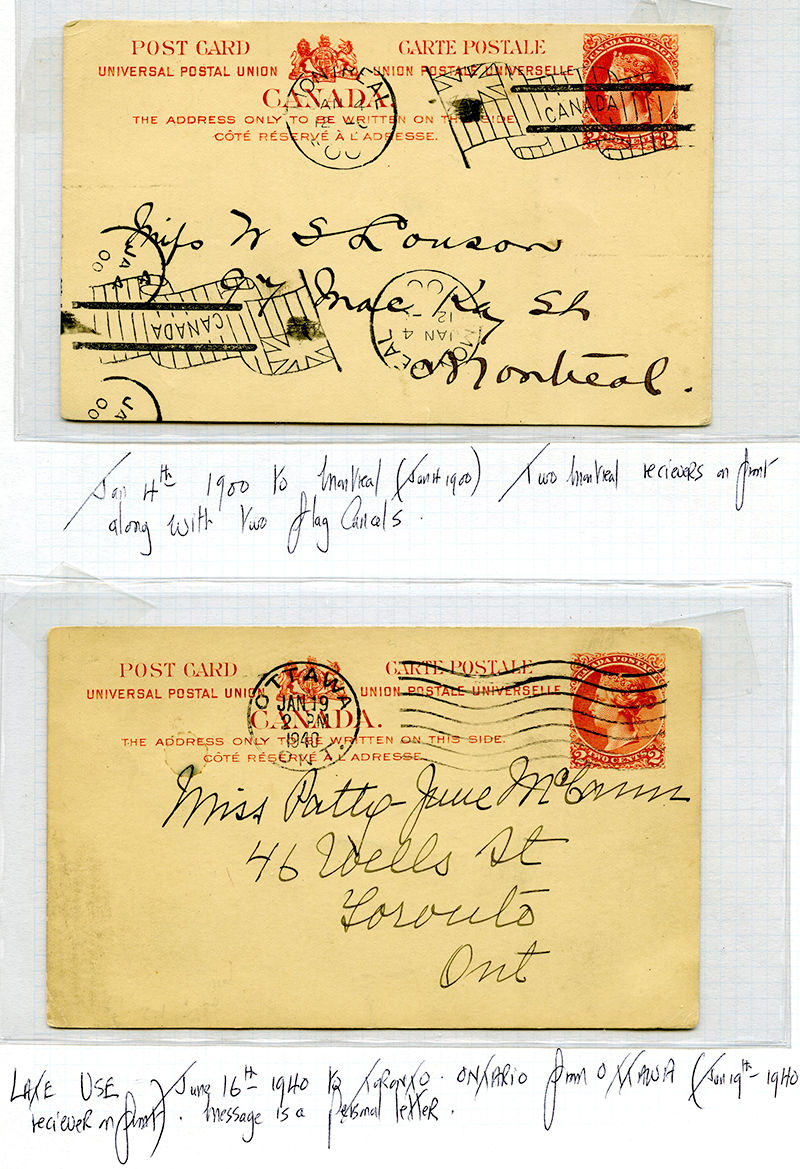 POST CARD CARTE POSTALE
UNIVERSAL POSTAL UNION UNION POSTALE UNIVERSELLE
CANADA POSTAGE
CANADA.
THE ADDRESS ONLY TO BE WRITTEN ON THIS SIDE.
CÔTÉ RÉSERVÉ À L'ADRESSE.
MONTREAL
JAN 4
CANADA
Miss W S Louson
Mac Kay St
Montreal.
JA 4
00
CANADA
MON EAL
JAN 4
12
00
JA
00
Jan 4th 1900 to Montreal (Jan 4 1900) Two Montreal recievers on front
along with two flag cancels.
POST CARD CARTE POSTALE
UNIVERSAL POSTAL UNION UNION POSTALE UNIVERSELLE
CANADA POSTAGE
CANADA.
THE ADDRESS ONLY TO BE WRITTEN ON THIS SIDE.
CÔTÉ RÉSERVÉ À L'ADRESSE.
2 TWO CENTS 2
OTTAWA
JAN 19
2 PM
1940
ONT.
Miss Patty-June McCann
46 Wells St
Toronto
Ont
LATE USE June 16th 1940 to TORONTO. ONTARIO from OTTAWA (Jun 19th 1940
reciever on front). Message is a personal letter.